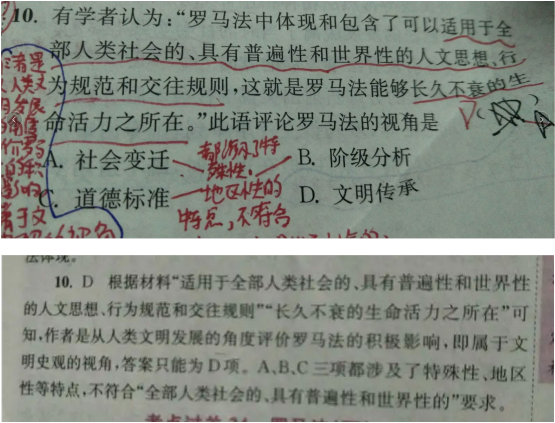 10. 有学者认为:“罗马法中体现和包含了可以适用于全
部人类社会的、具有普遍性和世界性的人文思想、行
为规范和交往规则,这就是罗马法能够长久不衰的生
命活力之所在。”此语评论罗马法的视角是
A. 社会变迁
B. 阶级分析
C. 道德标准
D. 文明传承
都涉及了特
殊性.
地区性的
特点,不符合
10. D 根据材料“适用于全部人类社会的、具有普遍性和世界性
的人文思想、行为规范和交往规则”“长久不衰的生命活力之所在”可
知,作者是从人类文明发展的角度评价罗马法的积极影响,即属于文
明史观的视角,答案只能为 D 项。A、B、C 三项都涉及了特殊性、地区
性等特点,不符合“全部人类社会的、具有普遍性和世界性的”要求。